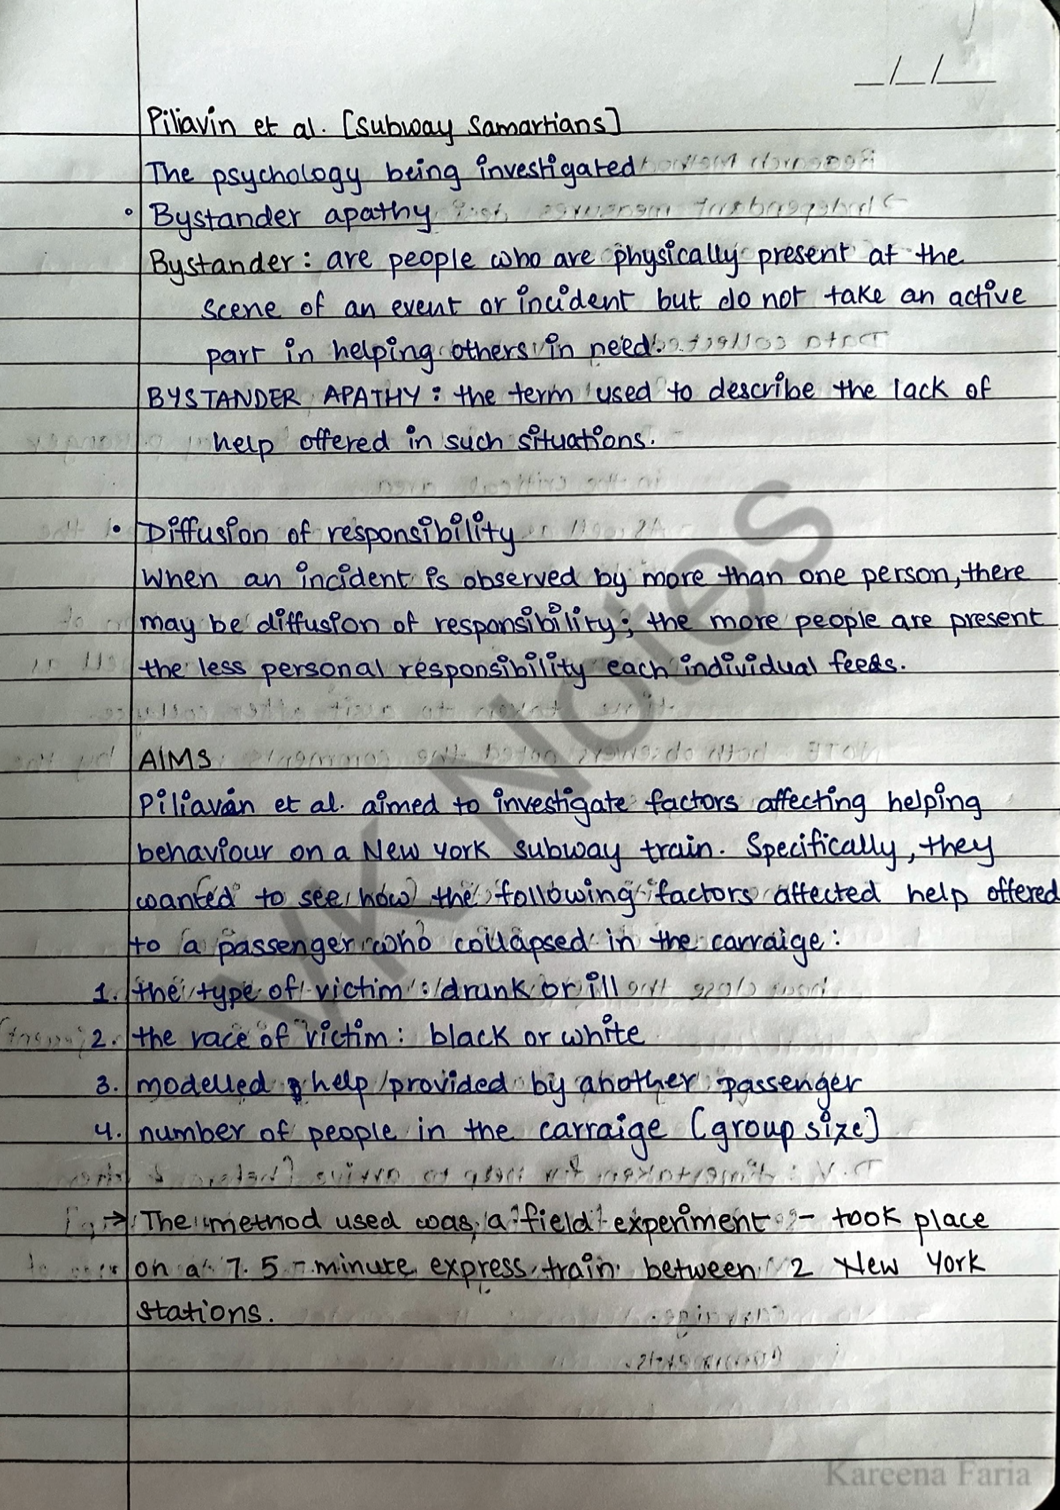 _/_/__
Piliavin et al. [Subway Samartians]
The psychology being investigated
• Bystander apathy
Bystander: are people who are physically present at the
scene of an event or incident but do not take an active
part in helping others in need.
BYSTANDER APATHY: the term used to describe the lack of
help offered in such situations.
• Diffusion of responsibility
When an incident is observed by more than one person, there
may be diffusion of responsibility; the more people are present
the less personal responsibility each individual feels.
AIMS
Piliavin et al. aimed to investigate factors affecting helping
behaviour on a New York subway train. Specifically, they
wanted to see how the following factors affected help offered
to a passenger who collapsed in the carraige:
1. the type of victim: drunk or ill
2. the race of victim: black or white
3. modelled help provided by another passenger
4. number of people in the carraige [group size]
→ The method used was a field experiment - took place
on a 7.5-minute express train between 2 New York
stations.
VK Notes
Kareena Faria